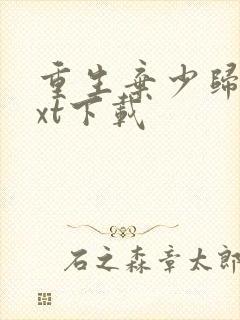 重生棄少歸
xt下載
石之森章太郎